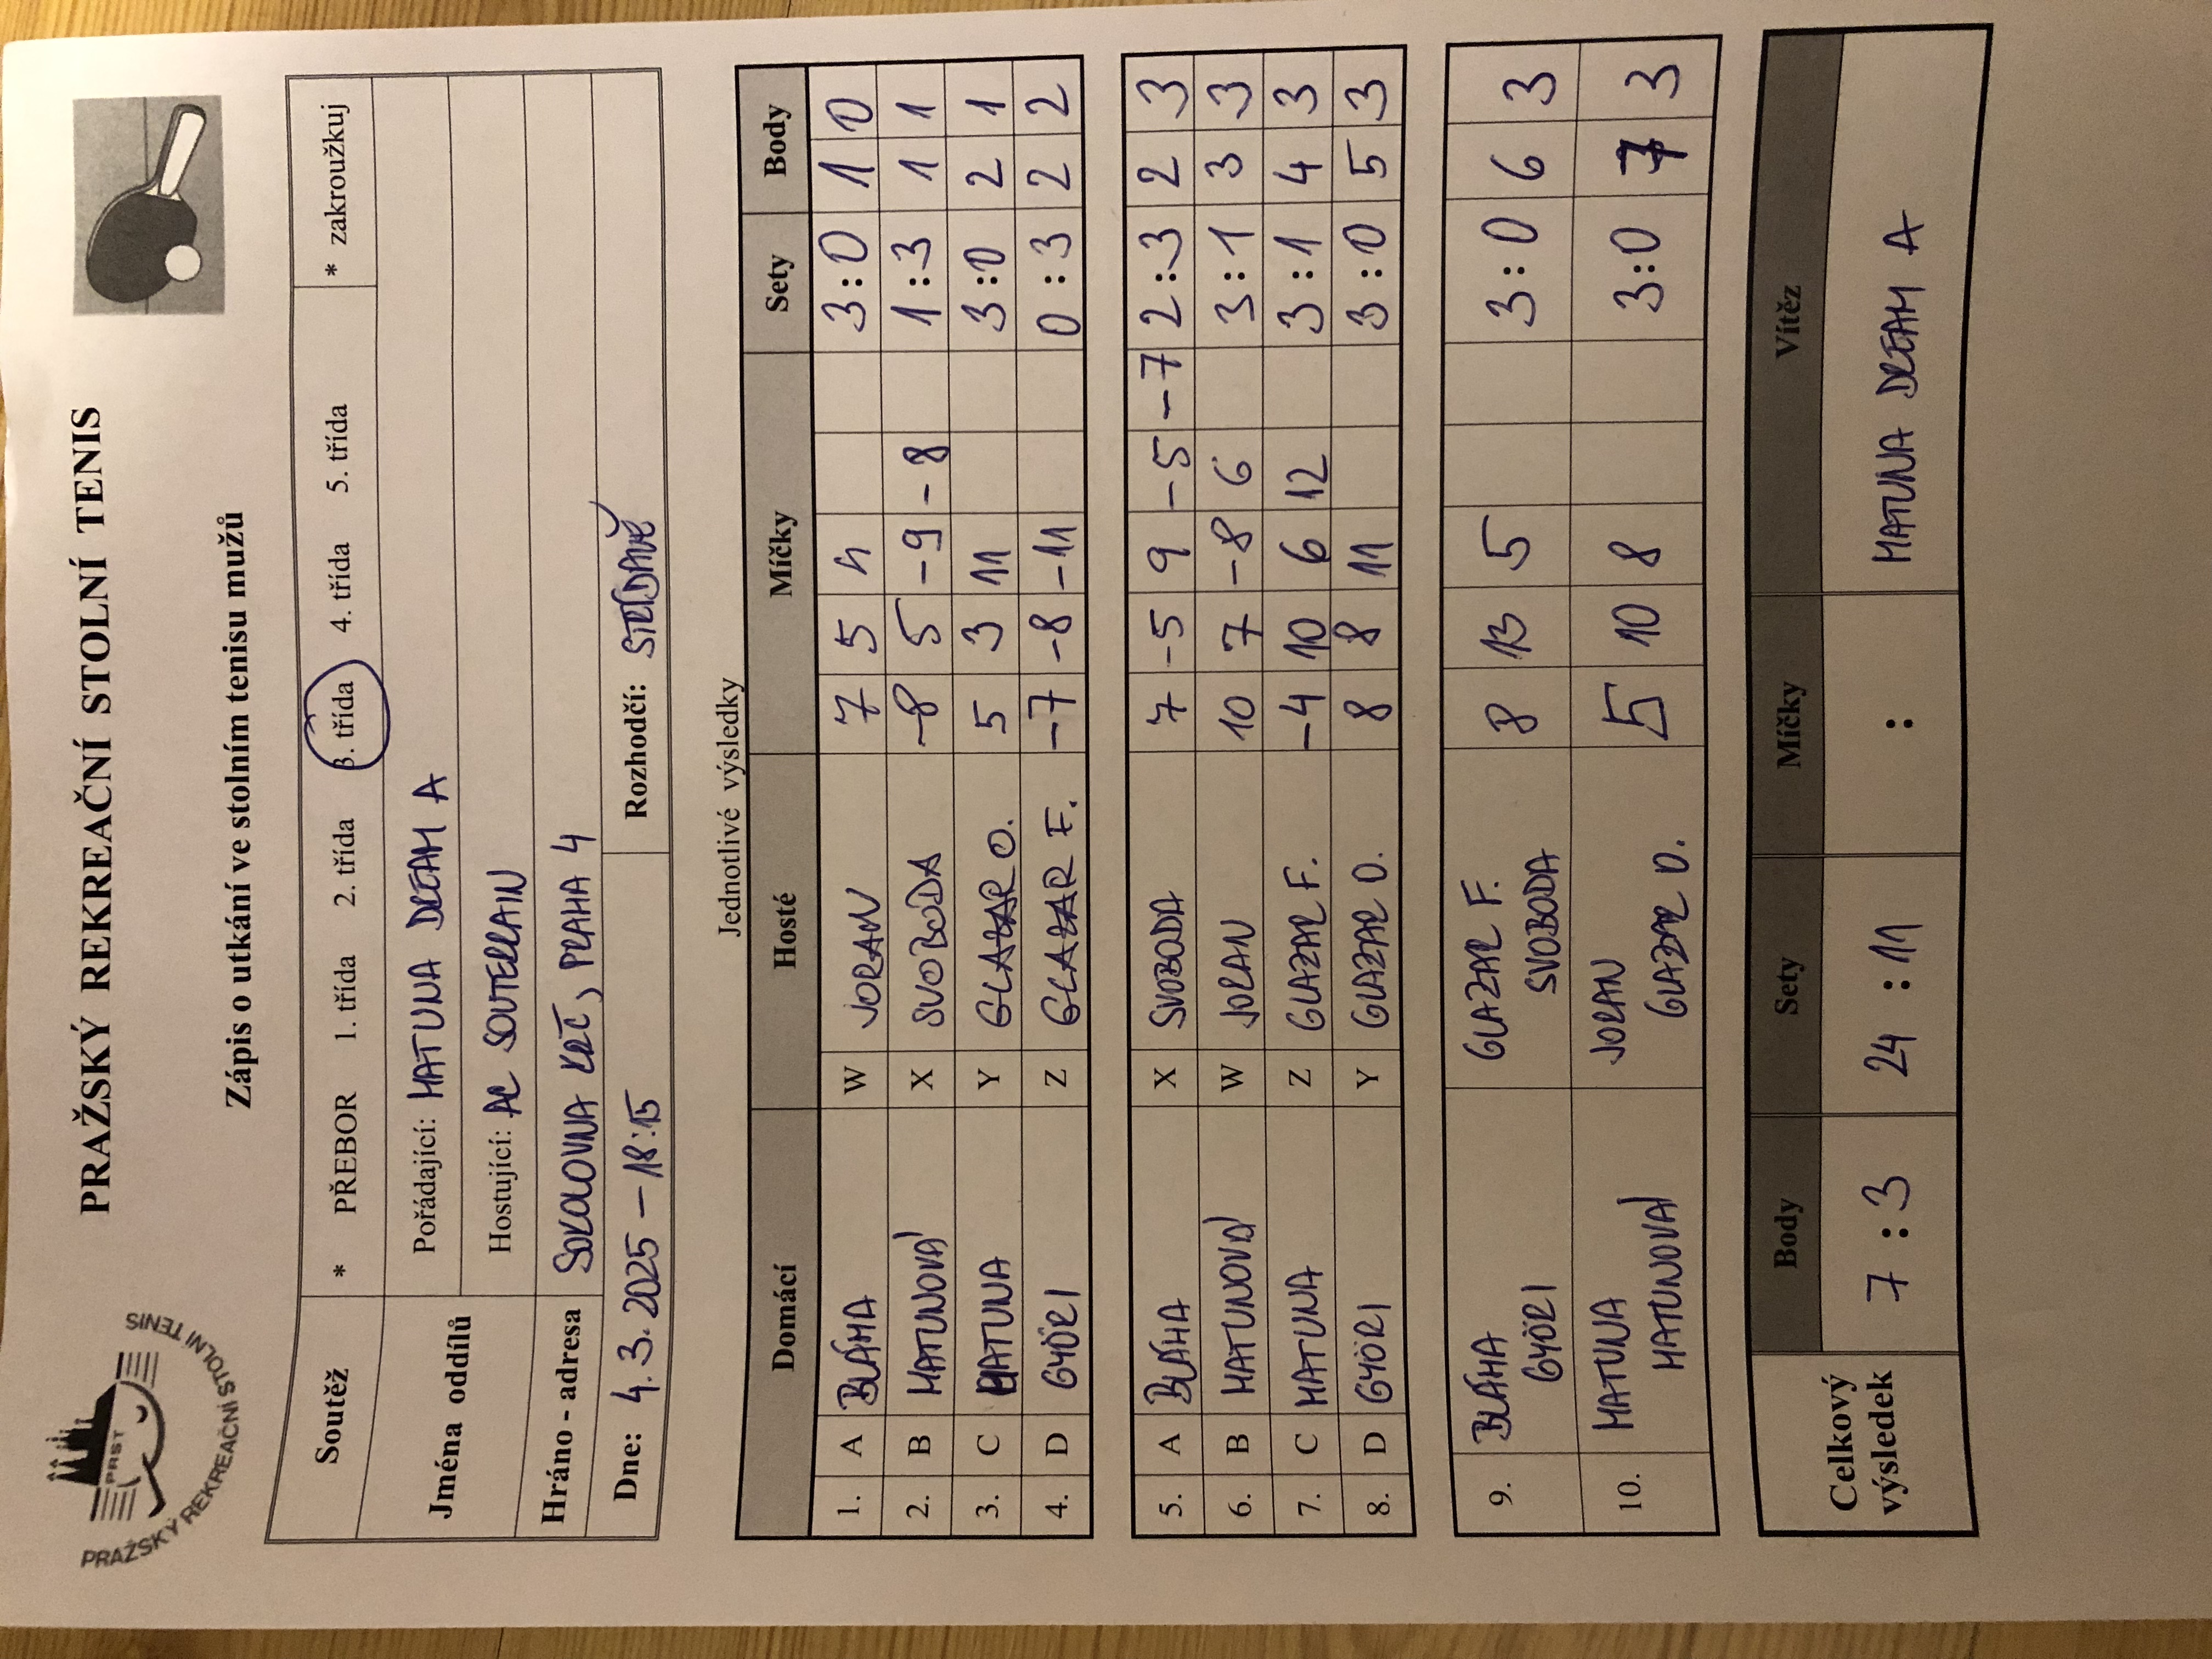 PRAŽSKÝ REKREAČNÍ STOLNÍ TENIS
PRST
PRAŽSKÝ REKREAČNÍ STOLNÍ TENIS
Zápis o utkání ve stolním tenisu mužů
Soutěž * PŘEBOR 1. třída 2. třída 3. třída 4. třída 5. třída * zakroužkuj
Jména oddílů Pořádající: MATUNA DREAM A
Hostující: AC SOUTERRAIN
Hráno - adresa SOKOLOVNA KRČ, PRAHA 4
Dne: 4. 3. 2025 – 18:15 Rozhodčí: STŘÍDAVĚ
Jednotlivé výsledky
Domácí Hosté Míčky Sety Body
1. A BLÁHA W JORAN 7 5 4 3:0 1 0
2. B MATUNOVÁ X SVOBODA -8 5 -9 -8 1:3 1 1
3. C MATUNA Y GLAZAR O. 5 3 11 3:0 2 1
4. D GYÖRI Z GLAZAR F. -7 -8 -11 0:3 2 2
5. A BLÁHA X SVOBODA 7 -5 9 -5 -7 2:3 2 3
6. B MATUNOVÁ W JORAN 10 7 -8 6 3:1 3 3
7. C MATUNA Z GLAZAR F. -4 10 6 12 3:1 4 3
8. D GYÖRI Y GLAZAR O. 8 8 11 3:0 5 3
9. BLÁHA GLAZAR F. 8 13 5 3:0 6 3
GYÖRI SVOBODA
10. MATUNA JORAN 5 10 8 3:0 7 3
MATUNOVÁ GLAZAR O.
Celkový výsledek Body Sety Míčky Vítěz
7:3 24:11 : MATUNA DREAM A